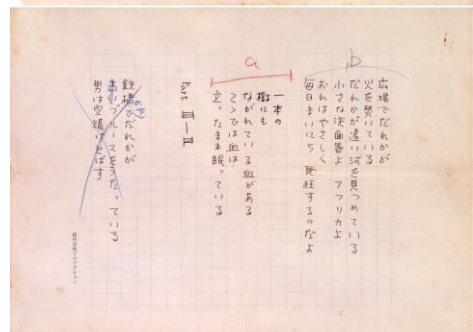 b
広場でだれかが
火を焚いている
だれかが遠い河を見つめている
小さな洗面器よ アフリカよ
おれはやさしく
毎日まいにち 発狂するのだよ
a
一本の
樹にも
ながれている血がある
そこでは血は
立ったまま眠っている
Part
鉄橋の下でだれかが
ブルースをうたっている
男は空